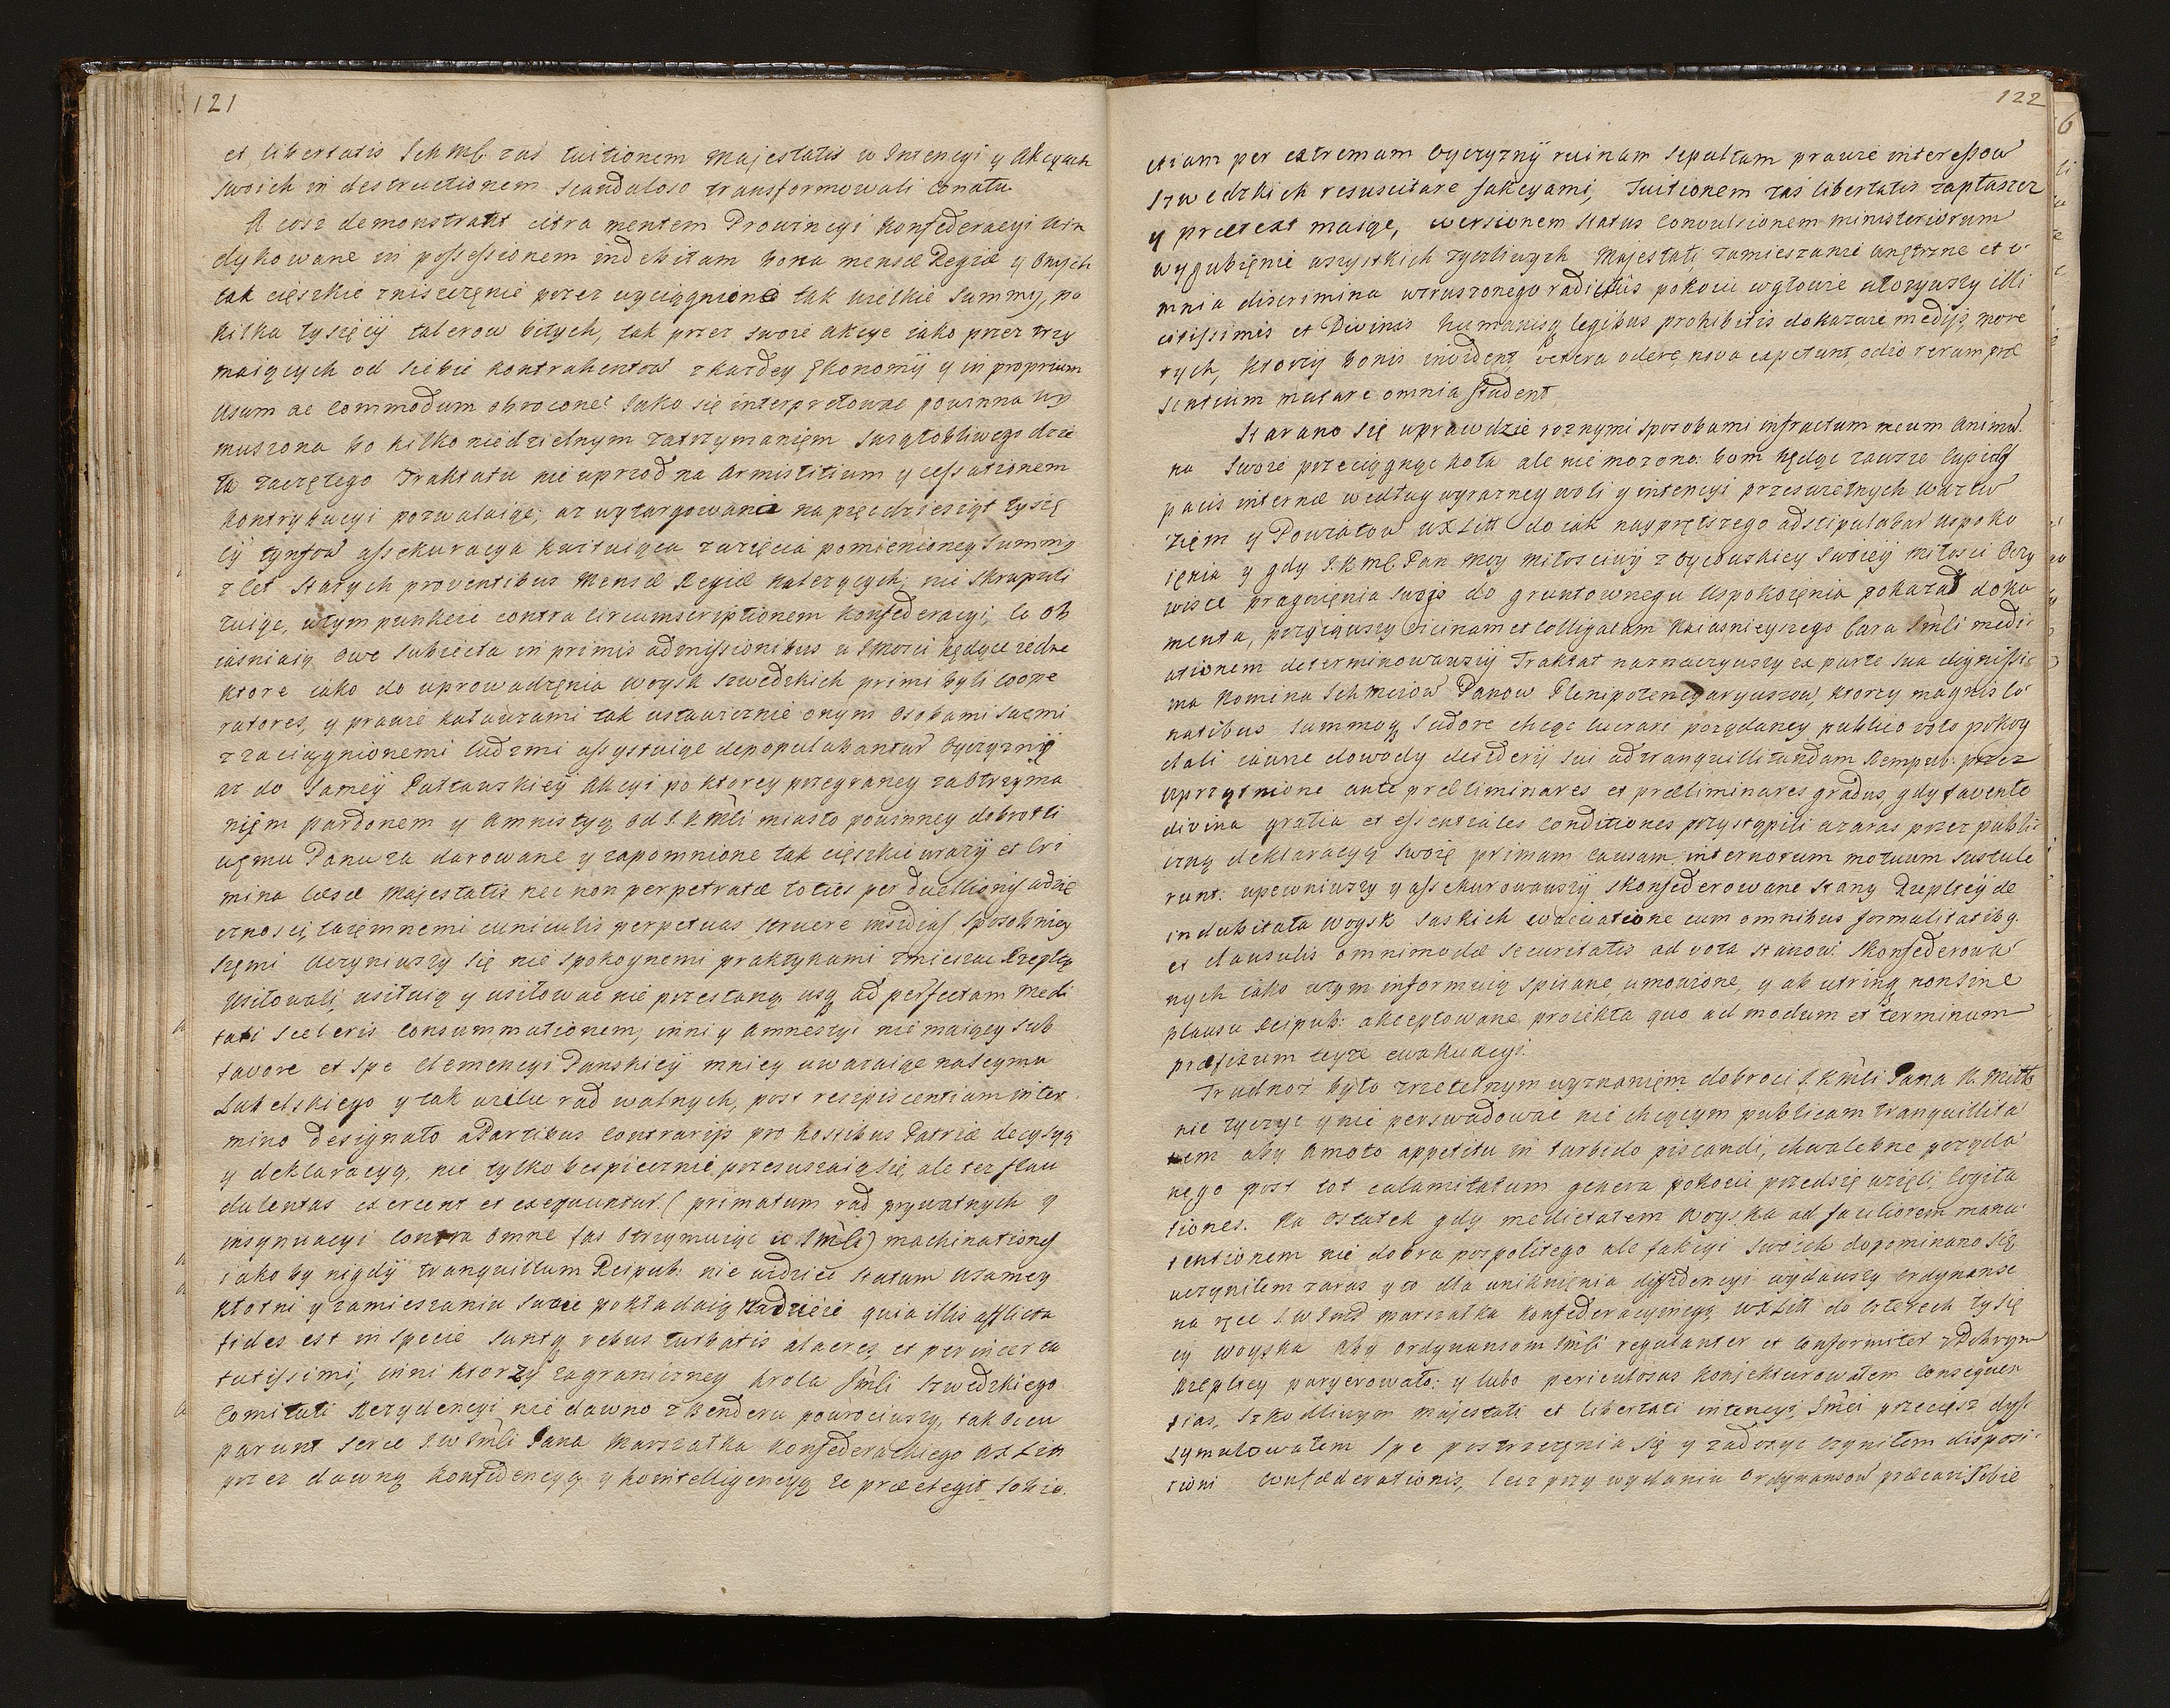 121
et libertatis SchMC. zaś tuitionem Majestatis w Intencyi y Akcyach
swoich in destructionem scandaloso transformowali conatu
A cosz demonstrant citra mentem Prowincyi Konfederacyi win
dykowane in possessionem indebitam bona mensæ Regiæ y Onych
tak cięszkie zniszczęnie przez wyciągnione tak wielkie Summy, po
kilka tysięcy talerow bitych, tak przez swoie akcye iako przez trzy
maiących od siebie kontrahentow z kazdey Ekonomij y in proprium
usum ac Commodum obrocone? Jako się interpretowac powinna wy
muszona bo kilko niedzielnym zatrzymanięm swiątobliwego dzie
ła zaczętego Traktatu nie uprzod na Armistitium y cessationem
kontrybucyi pozwalaiąc, az wytargowana na pięcdziesiąt tysię
cy tynfow assekuracya kawuiąca zwzięcia pomienioney Summy
z let starych proventibus Mensæ Regiæ nalezących, nie skrupuli
zuiąc, wtym punkcie contra Circumscriptionem Konfederacyi, co ob
iasniaią owe Subiecta in primis admissionibus u JMosci będące zedne
ktore iako do uprowadzęnia woysk szwedzkich primi byli coope
ratores, y prawie katauzami tak ustawicznie onym osobami swemi
z zaciągnionemi ludzmi assystuiąc depopulabantur Oyczyznę
az do samey Pułtawskiey Akcyi po ktorey przegraney zaotrzyma
nięm pardonem y Amnistyą od J.K.Mći miasto powinney dobrotli
wemu Panu za darowane y zapomnione tak cięszkie urazy et Cri
mina læsæ Majestatis nec non perpetratæ toties perduellionis wdzię
cznosci, taięmnemi cuniculis perpetuas struere insidias sposobniey
szemi uczyniwszy się nie spokoynemi praktykami zmieszac Rzeplꞇą
usiłowali, usiłuią y usiłowac nie przestaną usq ad perfectam medi
tati sceleris Consummationem, inni y Amnestyi nie maiący sub
favore et spe Clemencyi Panskiey mniey uwazaiąc na seymu
Lubelskiego y tak wielu rad walnych, post resipiscentiam inter
mino designato a Partibus Contrarijs pro hostibus Patriæ decysyą
y deklaracyą, nie tylko bespiecznie przesuszaią się, ale tez frau
dulentas exercent et exequuntur (primatum rad prywatnych y
insynuacyi contra omne fas otrzymuiąc u JMći) machinationes
iakoby nigdy tranquillum Reipub: nie widziec statum wsamey
kłotni y zamieszaniu swoie pokładaią nadzieie quia illis afflicta
fides est in specie suntq rebus turbatis alacres, et per incerta
tutissimi, inni ktorzy zagraniczney Krola Jmći Szwedzkiego
Comitati Rezydencyi nie dawno z Benderu powrociwszy, tak occu
parunt serce JWJMći Pana Marszałka Konfederackiego WXLitt
przez dawną konfidencyą y kointelligencyą ze præelegit sobie
122
etiam per extremam Oyczyzny ruinam sepultam prawie interessow
szwedzkich resuscitare fakcyami, Tuitionem zaś libertatis zapłaszcz
y prætext maiąc, wersionem status Convulsionem ministeriorum
wygubięnie wszystkich zyczliwych Majestati, zamieszanie wnętrzne et o
mnia discrimina wzruszonego radicitus pokoiu wgłowie ułozywszy illi
citissimis et Divinis humanisq legibus prohibitis dokazuie medijs, more
tych, ktorzy bonis invident, vetera odere, nova expetunt, odio rerum præ
sentium mutare omnia student
Starano się uprawdzie roznymi sposobami infractum meum animu
na swoie przeciągnąc koła ale nie mozono: bom będąc zawsze Cupidus
pacis internæ według wyrazney woli y intencyi przeswietnych Woiew
ztw y Powiatow WXLitt do iak nayprętszego adstipulabar uspoko
ięnia y gdy J.K.MC. Pan moy Miłosciwy z Oycowskiey swoiey miłosci Oczy
wiste pragnięnia swego do gruntownego uspokoięnia pokazał doku
menta, przyiąwszy Vicinam et Colligatam Naiasnieyszego Cara JMći medi
ationem determinowawszy Traktat naznaczywszy ex parte sua dignissi
ma Nomina SchMciow Panow Plenipotencyaryuszow, ktorzy magnis Co
natibus summoq sudore chcąc lucrari porządaney publico voto pokoy
dali iawne dowody desiderij sui ad tranquillizandam Rempub: przez
uprzątnione ante præliminares et præliminares gradus, gdy favente
divina gratia et essentiales conditiones przystąpili azaras przez publi
czną deklaracyą swoię primam causam internorum motuum sustule
runt: upewniwszy y assekurowawszy skonfederowane stany Rzepltey de
indubitata woysk saskich ewacuatione cum omnibus formalitatibq
et clausulis omnimodæ securitatis ad vota stanow Skonfederowa
nych iako wtym informuią spisane umowione, y ab utrinq non sine
plausu Reipub: akceptowane proiekta quo ad modum et terminum
præfixum teyze ewakuacyi.
Trudnoz było zrzetelnym wyznanięm dobroci J.K.Mći Pana N. Mttо
nie zyczyc y nie perswadowac nie chcącym publicam tranquillita
tem aby amoto appetitu in turbido piscandi, chwalebne porząda
nego post tot calamitatum genera pokoiu przedsię wzięli cogita
tiones. Na ostatek gdy medietatem woyska ad faciliorem manu
tentionem nie dobra pospolitego ale fakcyi swoich dopominano się
uczyniłem zaras y to dla uniknięnia diffidencyi wydawszy ordynanse
na ręce J.W.Jmsć Marszałka Konfederacyinego WXLitt do czterech tysię
cy woyska aby ordynansom Jmći regulanter et conformiter zDobrym
Rzepltey paryerowało: y lubo periculosas konjekturowałem consequen
tias, szkodliwym Majestati et libertati intencyi Jmći przecięsz dyss
symulowałem spe postrzezęnia się y zadosyc czyniłem disposi
tioni Confœderationis, lecz przy wydaniu Ordynansow præcavi Sobie